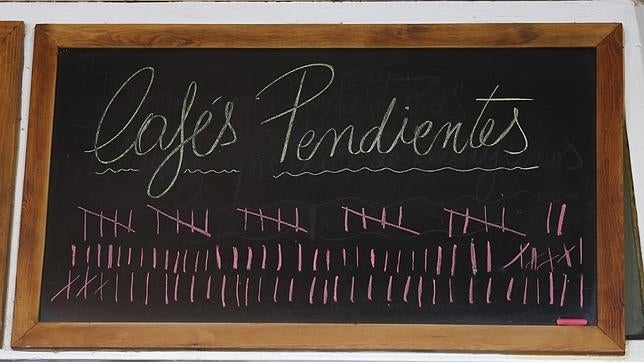 Cafés Pendientes